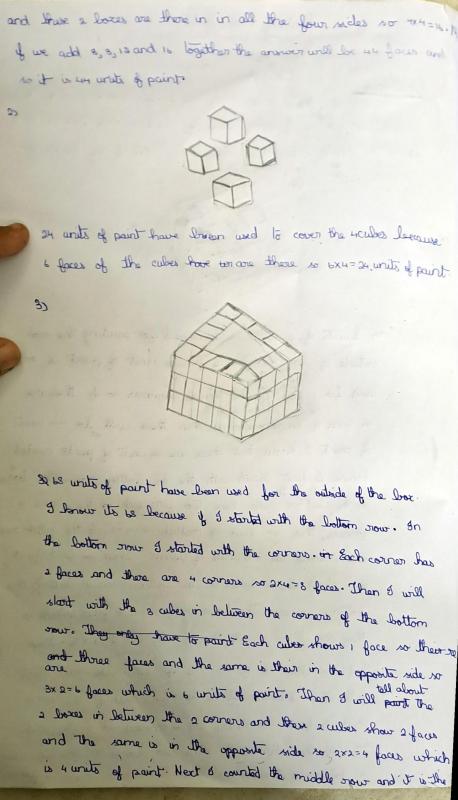 and these 2 boxes are there in in all the four sides so 4x4=16.
if we add 8, 8, 12 and 16 together the answer will be 44 faces and
so it is 44 units of paint.
2)
24 units of paint have been used to cover the 4 cubes because
6 faces of the cubes have are there so 6x4=24 units of paint
3)
68 units of paint have been used for the outside of the box.
I know its 68 because if I started with the bottom row. In
the bottom row I started with the corners. Each corner has
2 faces and there are 4 corners so 2x4=8 faces. Then I will
start with the 3 cubes in between the corners of the bottom
row. They only have to paint Each cube shows 1 face so there
are and three faces and the same is their in the opposite side so
3x2=6 faces which is 6 units of paint. Then I will paint tell about the
2 boxes in between the 2 corners and these 2 cubes show 2 faces
and the same is in the opposite side so, 2x2=4 faces which
is 4 units of paint. Next I counted the middle row and it is the